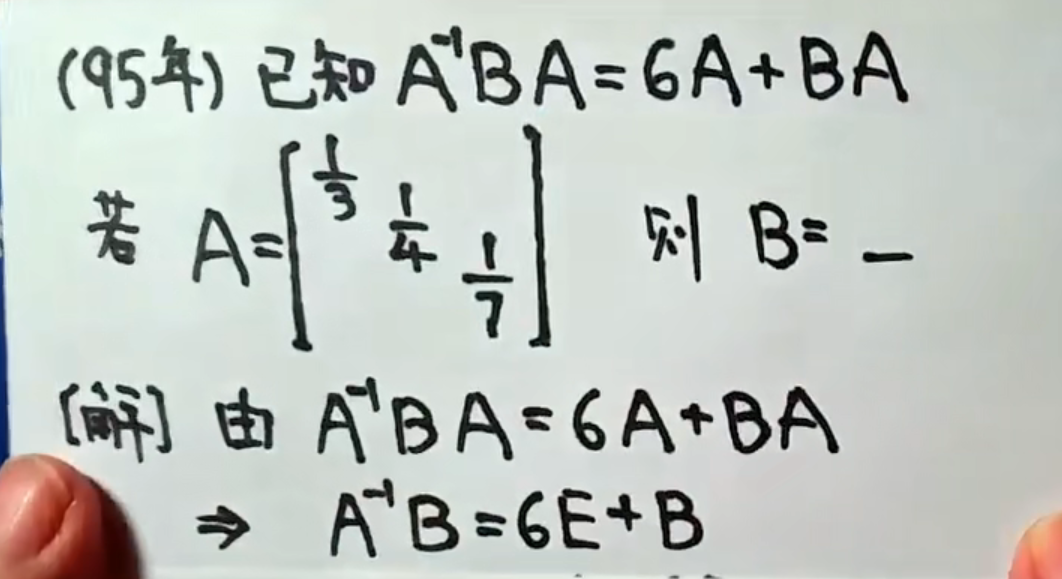 (95年) 已知 A⁻¹BA=6A+BA
若 A=[1/3 1/4 1/7] 则 B=_
[解] 由 A⁻¹BA=6A+BA
⇒ A⁻¹B=6E+B